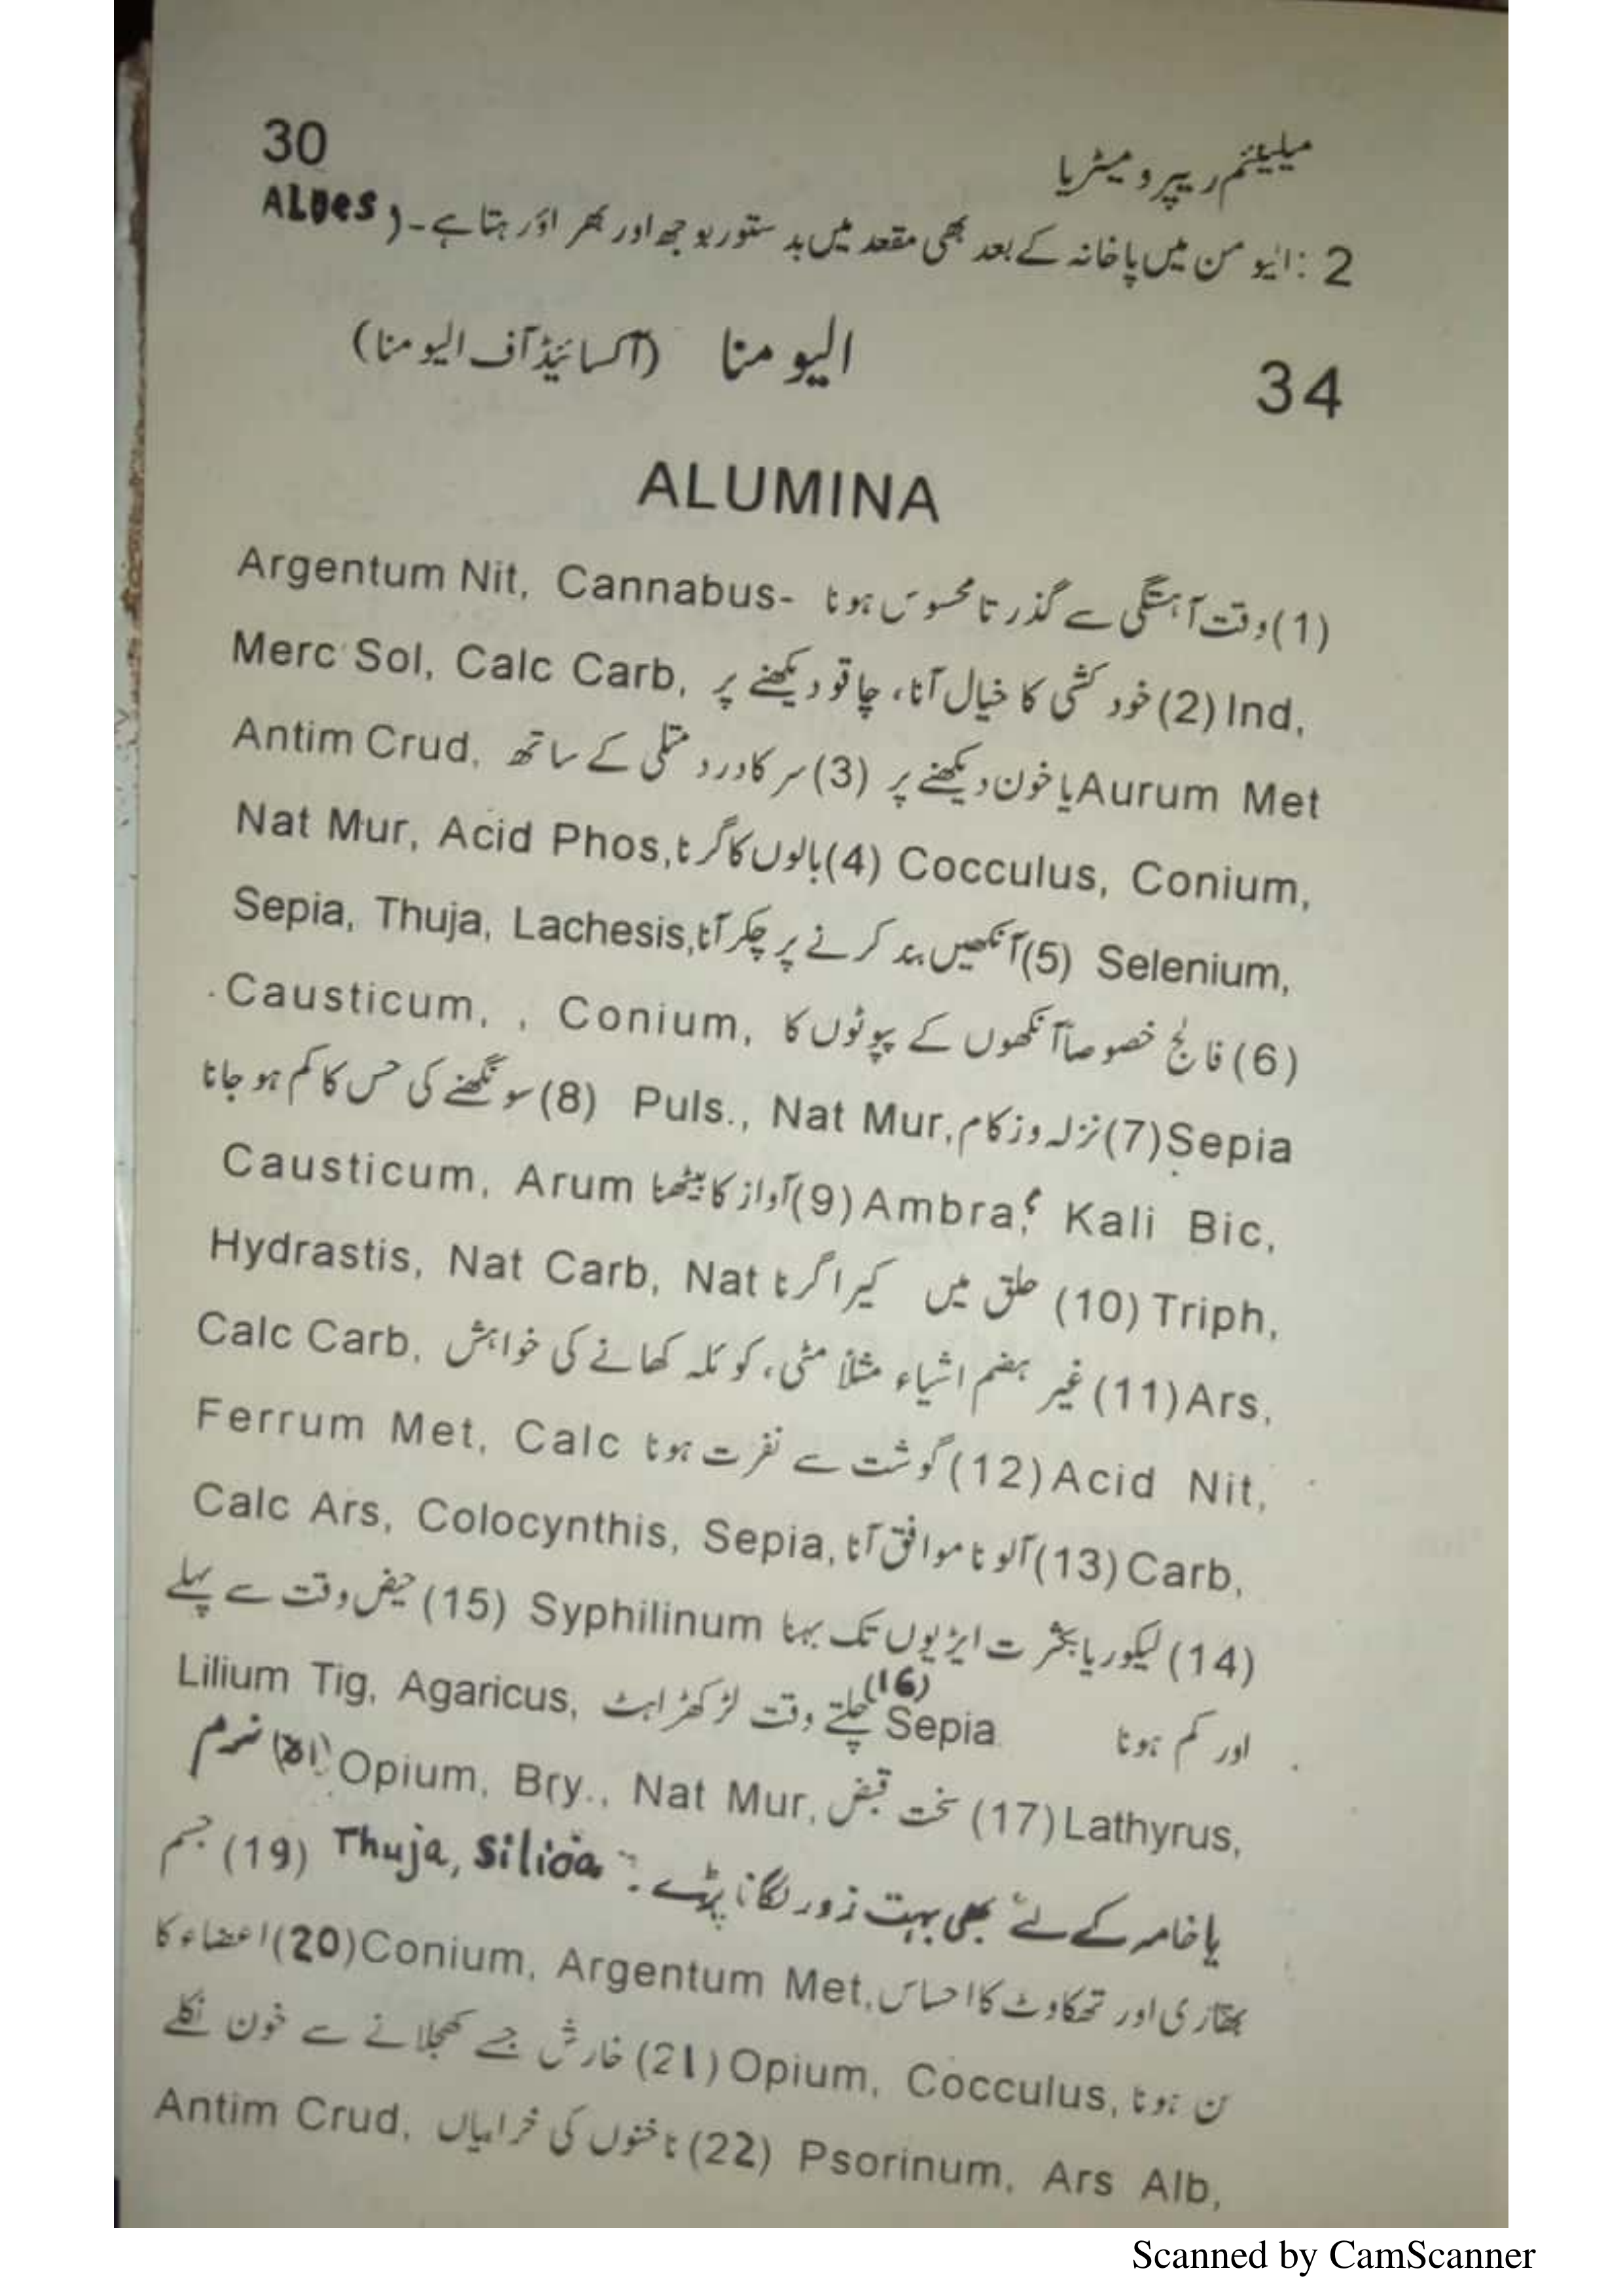 30
میلینئم ریپرومیٹریا
2 :ایومن میں پاخانہ کے بعد بھی مقعد میں بدستور بوجھ اور بھراؤ رہتا ہے۔( ALoes
34 الیومنا (آکسائیڈ آف الیومنا)
ALUMINA
(1)وقت آہستگی سے گذرتا محسوس ہونا Argentum Nit, Cannabus-
Ind, (2)خودکشی کا خیال آنا، چاقو دیکھنے پر Merc Sol, Calc Carb,
Aurum Met یا خون دیکھنے پر (3)سر کا درد متلی کے ساتھ Antim Crud,
Cocculus, Conium, (4)بالوں کا گرنا Nat Mur, Acid Phos,
Selenium, (5)آنکھیں بند کرنے پر چکر آنا Sepia, Thuja, Lachesis,
(6)فالج خصوصاً آنکھوں کے پپوٹوں کا Causticum, , Conium,
Sepia (7)نزلہ وزکام Puls., Nat Mur, (8)سونگھنے کی حس کا کم ہو جانا
Ambra, Kali Bic, (9)آواز کا بیٹھنا Causticum, Arum
Triph, (10) حلق میں کیرا گرنا Hydrastis, Nat Carb, Nat
Ars, (11)غیر ہضم اشیاء مثلاً مٹی، کوئلہ کھانے کی خواہش Calc Carb,
Acid Nit, (12)گوشت سے نفرت ہونا Ferrum Met, Calc
Carb, (13)آلو ناموافق آنا Calc Ars, Colocynthis, Sepia,
(14)لیکوریا بکثرت ایڑیوں تک بہنا Syphilinum (15)حیض وقت سے پہلے
اور کم ہونا Sepia (16) چلتے وقت لڑکھڑاہٹ Lilium Tig, Agaricus,
Lathyrus, (17) سخت قبض Opium, Bry., Nat Mur, نرم
پاخامہ کے لئے بھی بہت زور لگانا پڑے۔ Thuja, Silica (19) جسم
بھقاری اور تھکاوٹ کا احساس Conium, Argentum Met, (20)اعضاء کا
سن ہونا Opium, Cocculus, (21)خارش جسے کھجلانے سے خون نکلے
Psorinum, Ars Alb, (22)ناخنوں کی خرابیاں Antim Crud,
Scanned by CamScanner